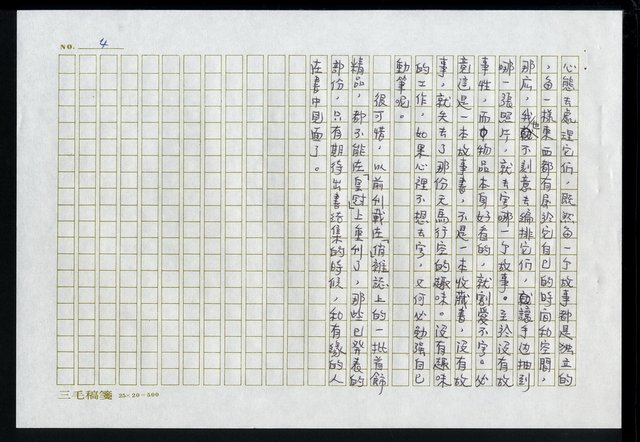 NO. 4
心態去處理它們,既然每一个故事都是独立的
,每一樣東西都有屬於它自已的時间和空間,
那麼,我也不刻意去编排它們,就讓手边抽到
哪一張照片,就去写哪一个故事。至於没有故
事性,而物品本身好看的,就割愛不写。必
竟這是一本故事書,不是一本收藏書,没有故
事,就失去了那份天馬行空的趣味。没有趣味
的工作,如果心裡不想去写,又何必勉强自已
動筆呢。
很可惜,以前刋載在「俏」雜誌上的一批首飾
精品,都不能在「皇冠」上重刋了,那些已發表的
部份,只有期待出書结集的時候,和有缘的人
在書中見面了。
三毛稿箋 25×20=500